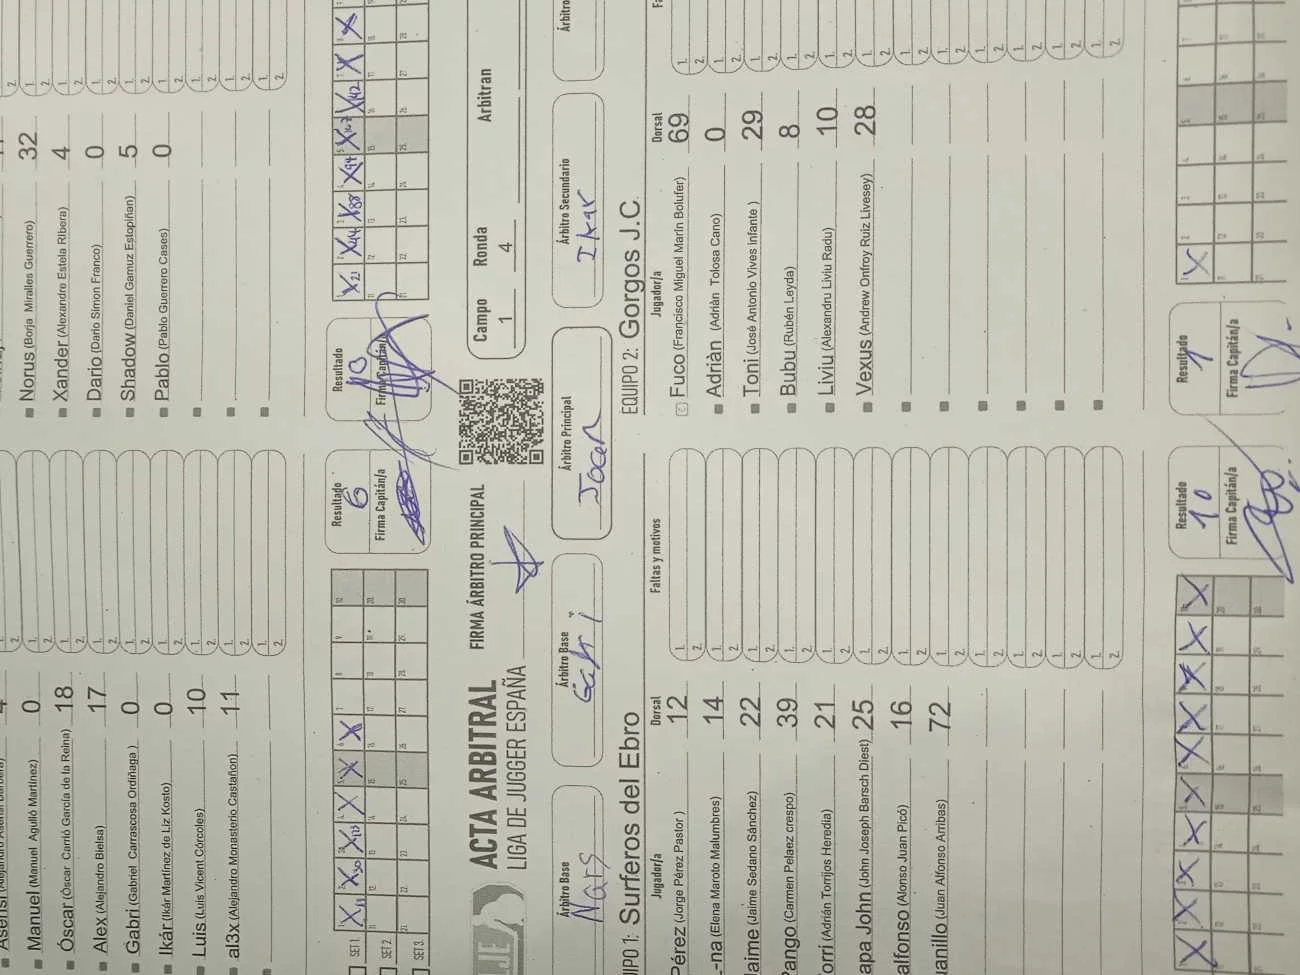 Manuel (Manuel Agulló Martínez) 0
Óscar (Óscar Carrió García de la Reina) 18
Alex (Alejandro Bielsa) 17
Gabri (Gabriel Carrascosa Ordiñaga ) 0
Ikár (Ikár Martínez de Liz Kosto) 0
Luis (Luis Vicent Córcoles) 10
al3x (Alejandro Monasterio Castañon) 11
Norus (Borja Miralles Guerrero) 32
Xander (Alexandre Estela Ribera) 4
Dario (Darío Simon Franco) 0
Shadow (Daniel Gamuz Estopiñan) 5
Pablo (Pablo Guerrero Cases) 0
SET 1.
SET 2.
SET 3.
Resultado 6
Firma Capitán/a
Resultado 10
Firma Capitán/a
ACTA ARBITRAL
LIGA DE JUGGER ESPAÑA
FIRMA ÁRBITRO PRINCIPAL
Campo 1
Ronda 4
Arbitran
Árbitro Base
Nars
Árbitro Base
Gabri
Árbitro Principal
Jocer
Árbitro Secundario
Ikar
EQUIPO 2: Gorgos J.C.
UIPO 1: Surferos del Ebro
Jugador/a Dorsal Faltas y motivos
Pérez (Jorge Pérez Pastor ) 12
-na (Elena Maroto Malumbres) 14
Jaime (Jaime Sedano Sánchez) 22
Pango (Carmen Pelaez crespo) 39
orri (Adrián Torrijos Heredia) 21
apa John (John Joseph Barsch Diest) 25
alfonso (Alonso Juan Picó) 16
uanillo (Juan Alfonso Arribas) 72
Jugador/a Dorsal
Fuco (Francisco Miguel Marín Bolufer) 69
Adriàn (Adrián Tolosa Cano) 0
Toni (José Antonio Vives Infante ) 29
Bubu (Rubén Leyda) 8
Liviu (Alexandru Liviu Radu) 10
Vexus (Andrew Onfroy Ruiz Livesey) 28
Resultado 10
Firma Capitán/a
Resultado 1
Firma Capitán/a